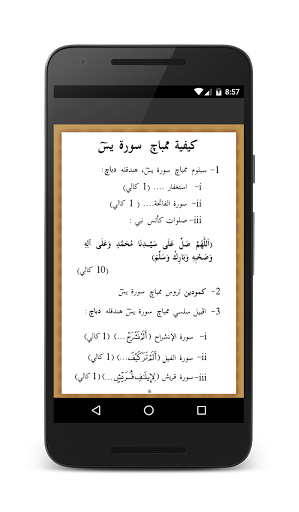 8:57
كيفية ممباچ سورة يسٓ
1- سبلوم ممباچ سورة يسٓ، هندقله دباچ:
i- استغفار .... (1 كالي)
ii- سورة الفاتحة.... (1 كالي)
iii- صلوات كأتس نبي :
(اَللّٰهُمَّ صَلِّ عَلَى سَيِّدِنَا مُحَمَّدٍ وَعَلَى آلِهِ
وَصَحْبِهِ وَبَارِكْ وَسَلِّمْ)
(10 كالي)
2- كمودين تروس ممباچ سورة يسٓ
3- اڤبيل سلسي ممباچ سورة يسٓ هندقله دباچ :
i- سورة الإنشراح (أَلَمْ نَشْرَحْ...) (1 كالي)
ii- سورة الفيل (أَلَمْ تَرَ كَيْفَ...) (1 كالي)
iii- سورة قريش (لِإِيلَٰفِ قُرَيْشٍ...) (1 كالي)